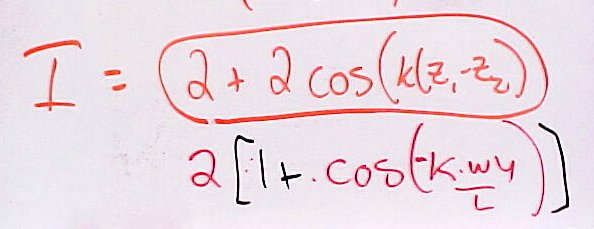 I = 2 + 2 cos(k(z₁-z₂))
2[1+ cos(-k·wy/L)]